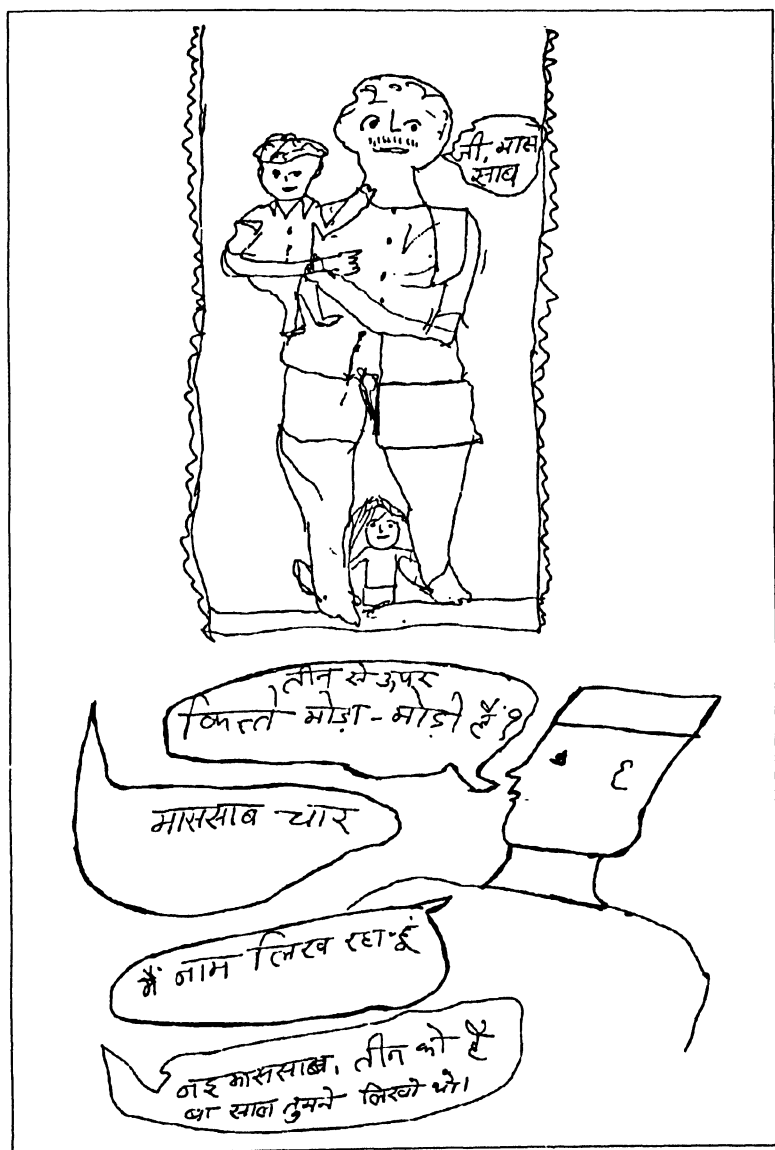 जी, मास
साब
तीन से ऊपर
कित्ते मोड़ा-मोड़ी हैं?
माससाब चार
मैं नाम लिख रहा हूं
नइ माससाब, तीन को है
बा साल तुमने लिखो थो।